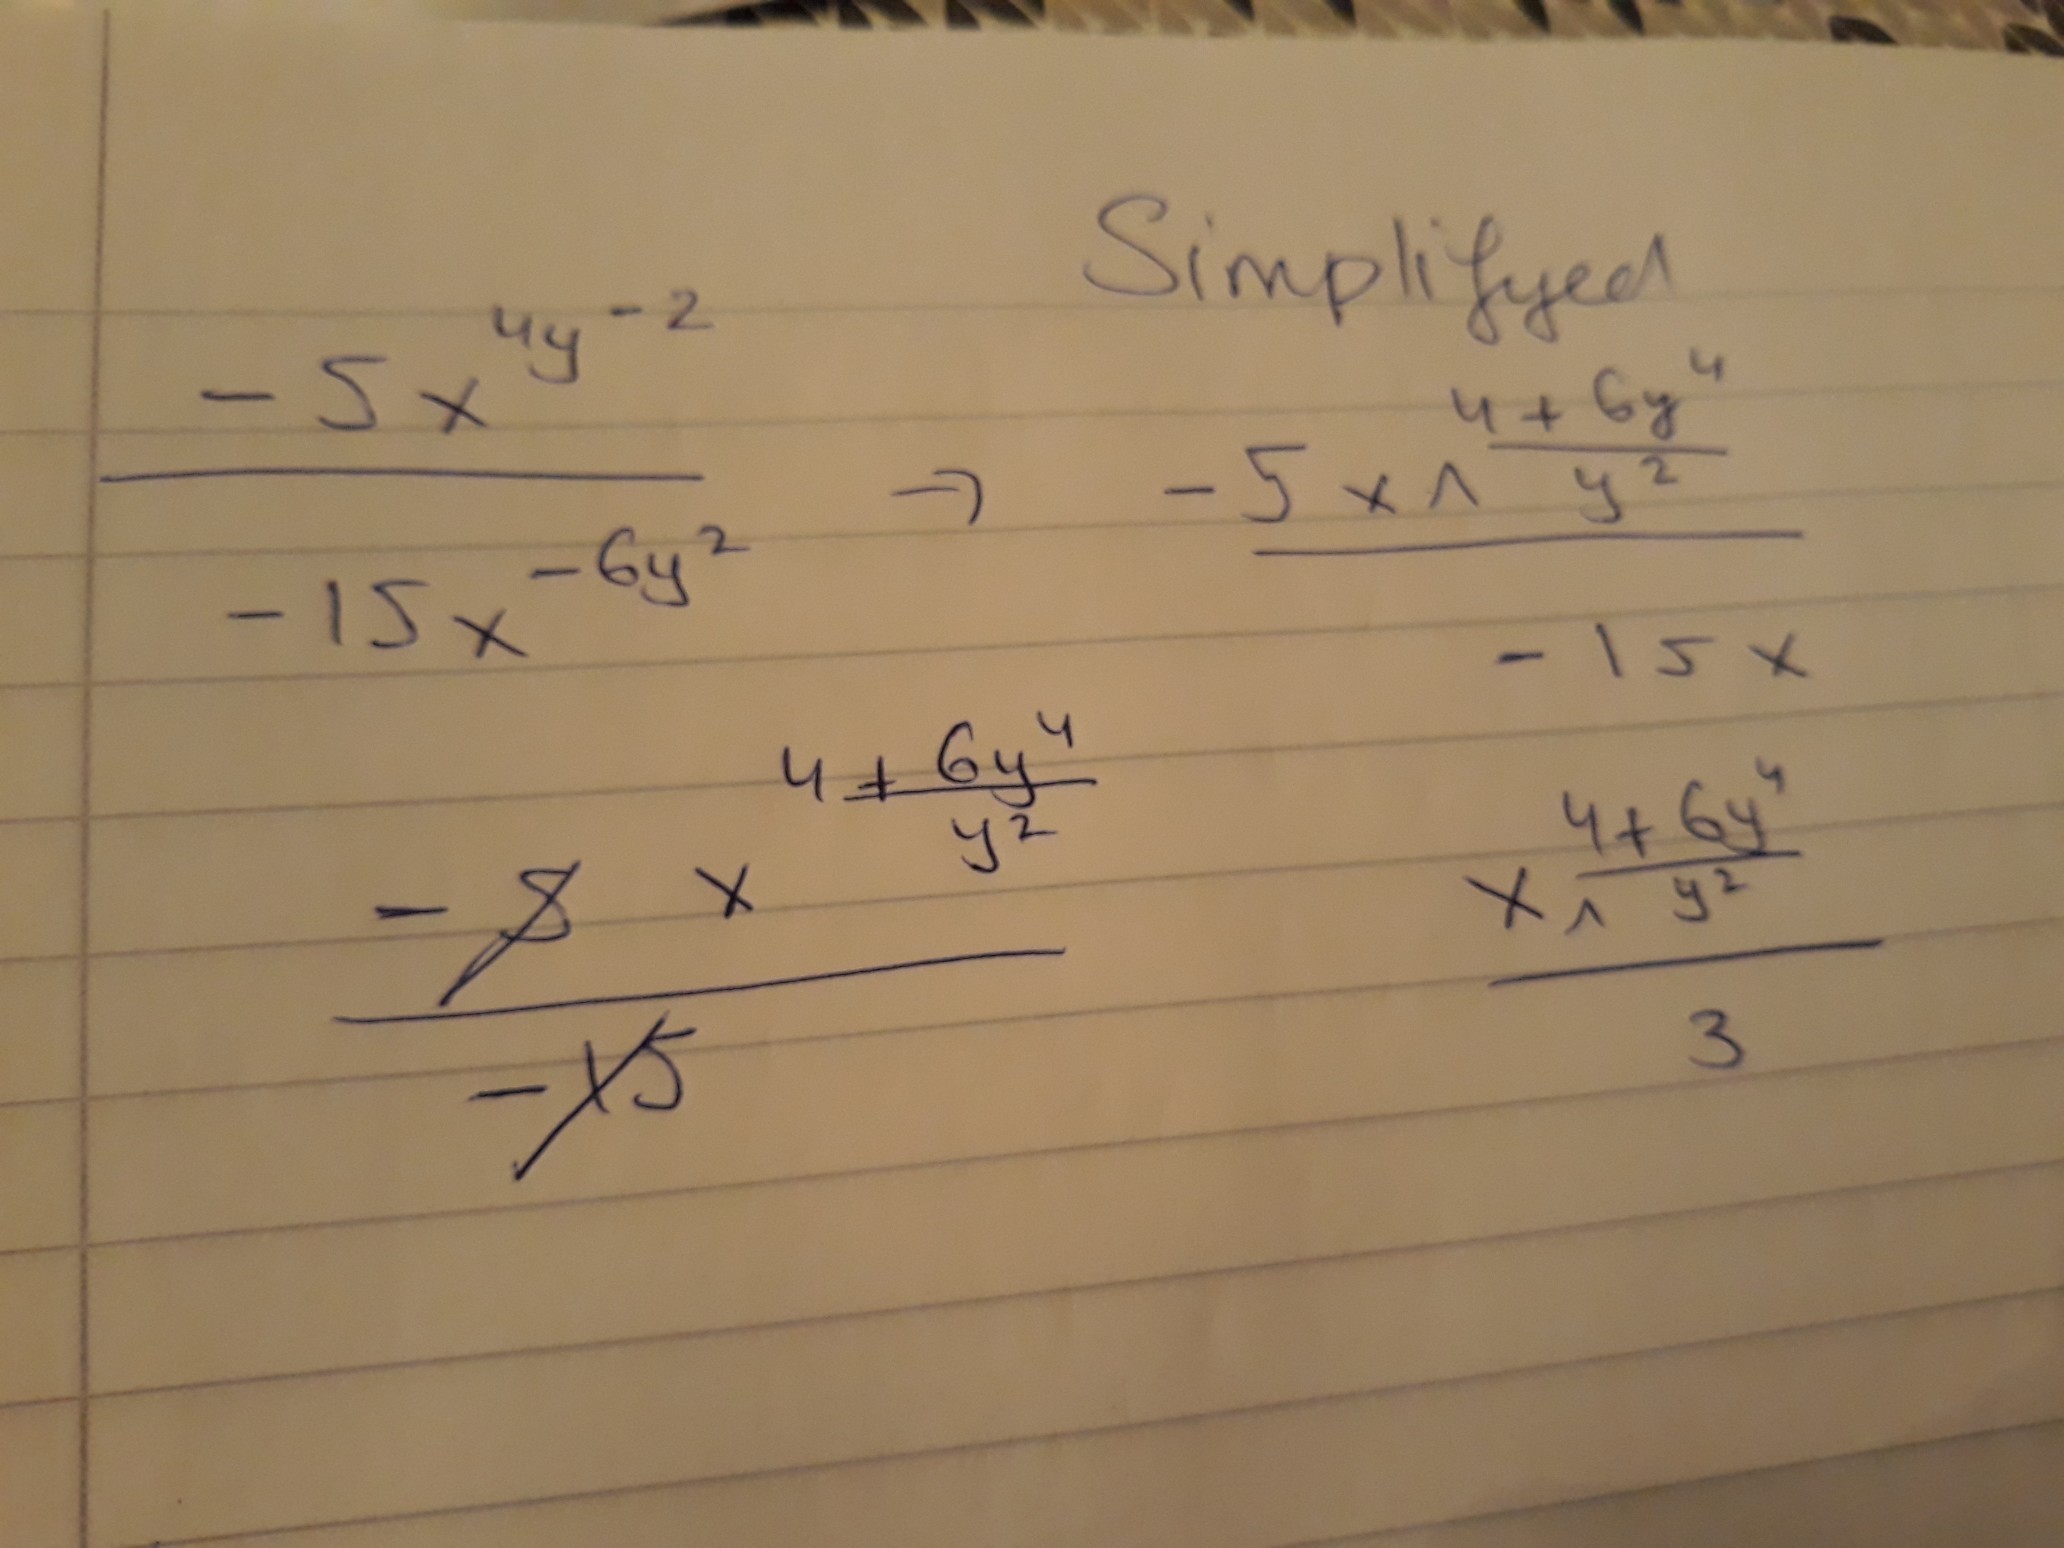 Simplifyed
-5x^{4y^{-2}} / -15x^{-6y^2} → -5x^ (4+6y^4 / y^2) / -15x
-5x^{4+6y^4 / y^2} / -15
x^ (4+6y^4 / y^2) / 3